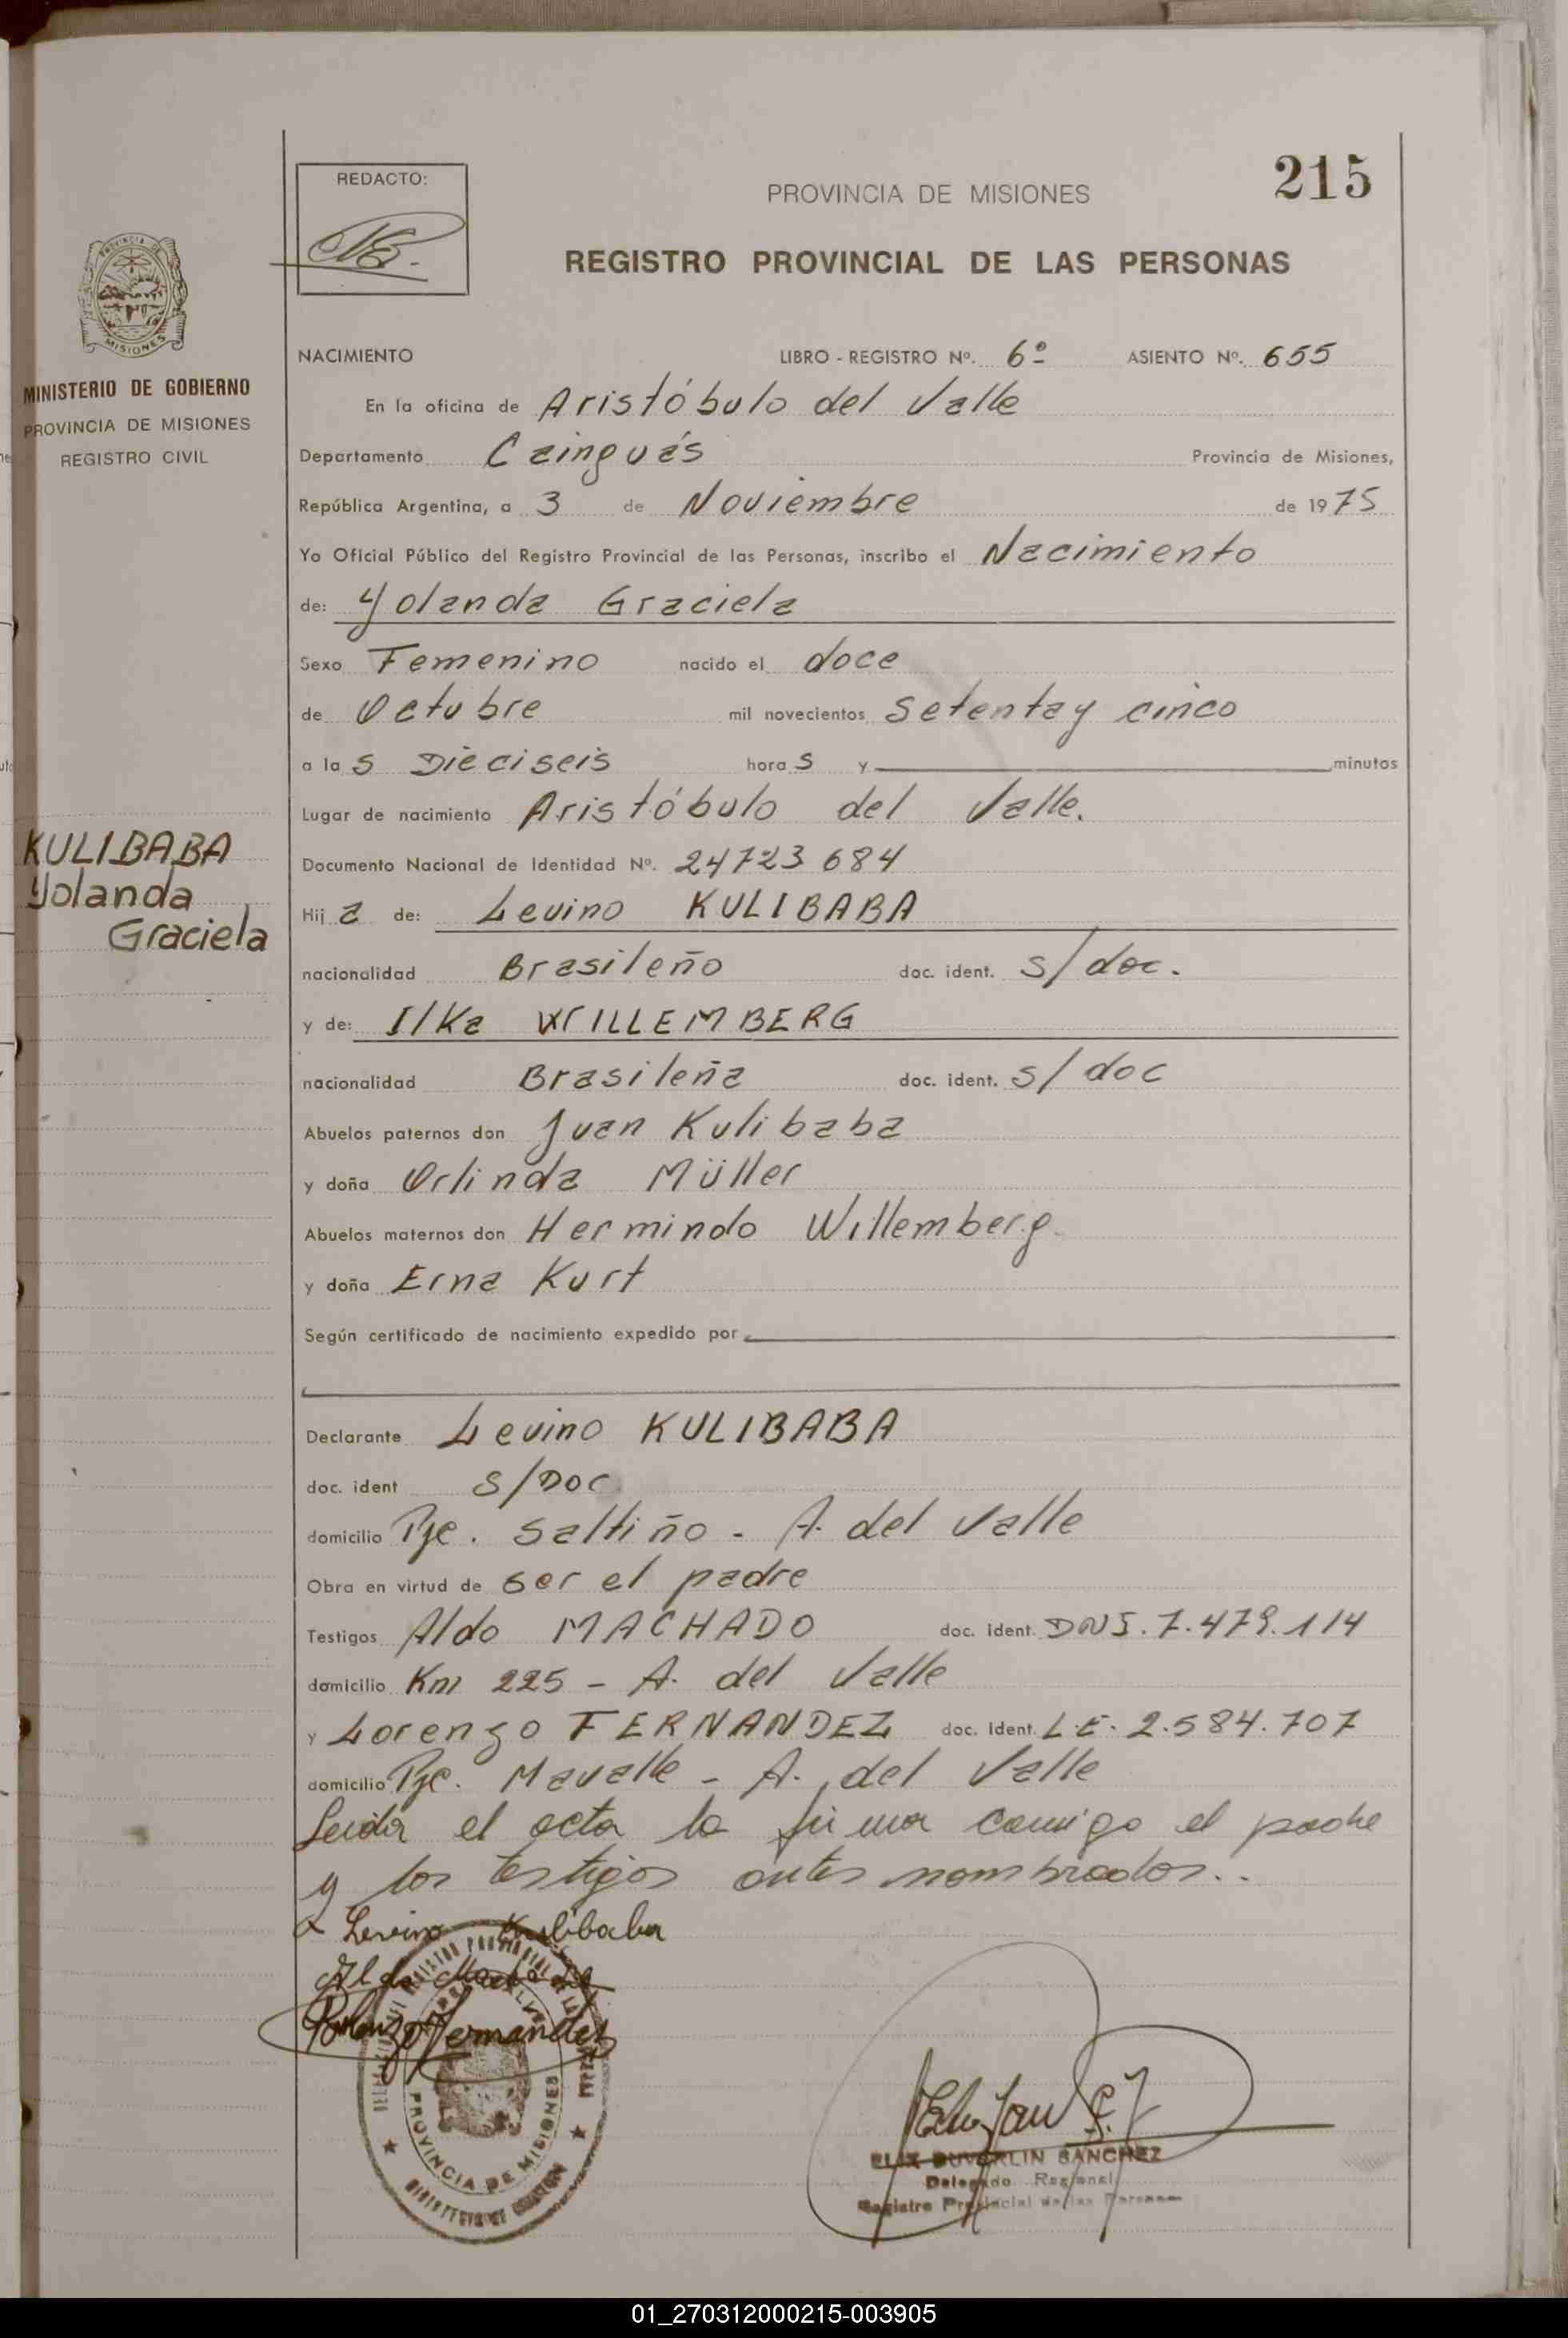 215
REDACTO:
PROVINCIA DE MISIONES
REGISTRO PROVINCIAL DE LAS PERSONAS
PROVINCIA DE
MISIONES
MINISTERIO DE GOBIERNO
PROVINCIA DE MISIONES
REGISTRO CIVIL
KULIBABA
Yolanda
Graciela
NACIMIENTO LIBRO - REGISTRO Nº. 6º ASIENTO Nº. 655
En la oficina de Aristóbulo del Valle
Departamento Cainguás Provincia de Misiones,
República Argentina, a 3 de Noviembre de 1975
Yo Oficial Público del Registro Provincial de las Personas, inscribo el Nacimiento
de: Yolanda Graciela
Sexo Femenino nacido el doce
de Octubre mil novecientos setenta y cinco
a la s Dieciseis hora s y minutos
Lugar de nacimiento Aristóbulo del Valle.
Documento Nacional de Identidad Nº. 24723684
Hij a de: Levino KULIBABA
nacionalidad Brasileño doc. ident. s/doc.
y de: Ilka WILLEMBERG
nacionalidad Brasileña doc. ident. s/doc
Abuelos paternos don Juan Kulibaba
y doña Orlinda Müller
Abuelos maternos don Hermindo Willemberg.
y doña Erna Kurt
Según certificado de nacimiento expedido por
Declarante Levino KULIBABA
doc. ident S/DOC
domicilio Pje. Saltiño - A. del Valle
Obra en virtud de ser el padre
Testigos Aldo MACHADO doc. ident. DNI. 7.479.114
domicilio Km 225 - A. del Valle
y Lorenzo FERNANDEZ doc. ident. L.E. 2.584.707
domicilio Pje. Mavalle - A. del Valle
Leida el acta la firma conmigo el padre
y los testigos antes nombrados..
Levino Kulibaba
Aldo Machado
Fernandez
PROVINCIA DE MISIONES
SANCHEZ
Delegado Regional
Registro Provincial de las Personas
01_270312000215-003905